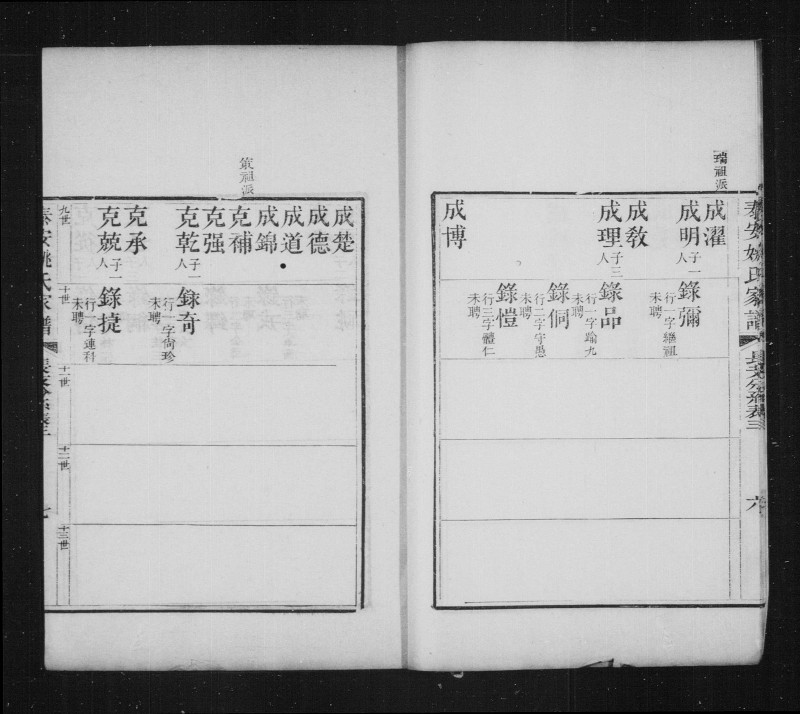 瑞祖派
泰安姚氏家譜
長支分系表三
六
成濯
成明 子一人
錄彌 行一字繩祖 未聘
成教
成理 子三人
錄品 行一字踰九 未聘
錄侗 行二字守愚 未聘
錄愷 行三字體仁 未聘
成博
策祖派
成楚
成德
成道
成錦
克補
克强
克乾 子一人
錄奇 行一字尙珍 未聘
克承
克兢 子一人
錄捷 行一字連科 未聘
九世
十世
十一世
十二世
十三世
泰安姚氏家譜
七